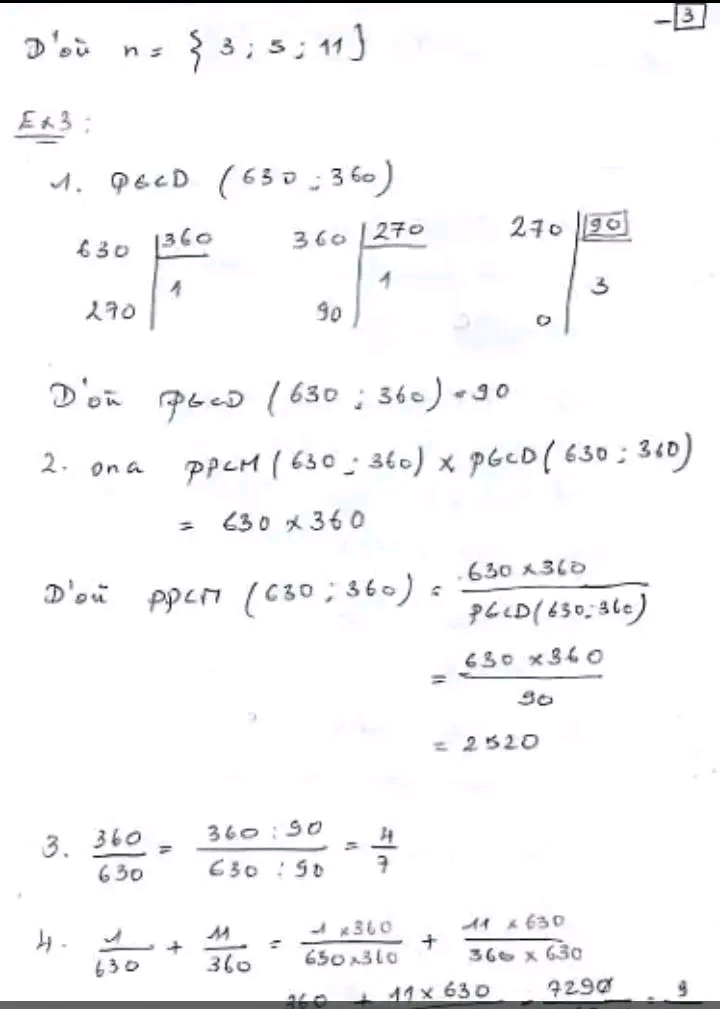 - 3
D'où n = { 3 ; 5 ; 11 }
Ex3 :
1. PGCD (630 ; 360)
630 | 360 360 | 270 270 | 90
270 | 1 90 | 1 0 | 3
D'où PGCD (630 ; 360) = 90
2. on a PPCM (630 ; 360) x PGCD (630 ; 360)
= 630 x 360
D'où PPCM (630 ; 360) = 630 x 360 / PGCD (630 ; 360)
= 630 x 360 / 90
= 2520
3. 360/630 = 360 : 90 / 630 : 90 = 4/7
4. 1/630 + 11/360 = 1 x 360 / 630 x 360 + 11 x 630 / 360 x 630
360 + 11 x 630 = 7290 = 9